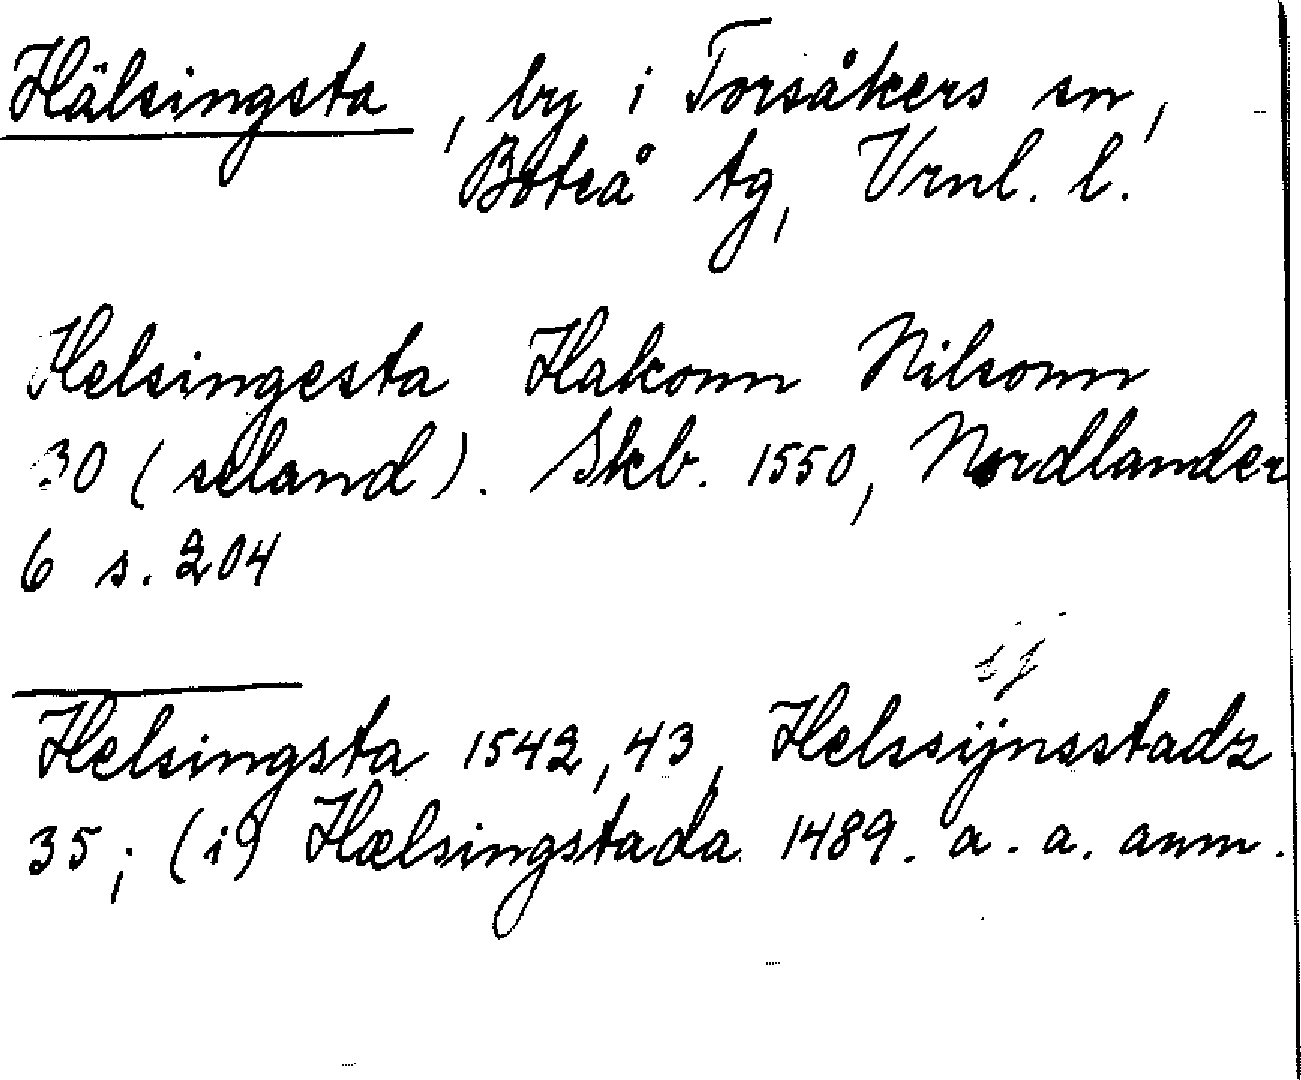 Hälsingsta, by i Torsåkers sn,
Boteå tg, Vrnl. l.
Helsingesta Hakonn Nilsonn
30 (seland). Skb. 1550, Nordlander
6 s. 204
ij
Helsingsta 1542, 43, Helssijnsstadz
35; (i) Hælsingstada 1489. a. a. anm.